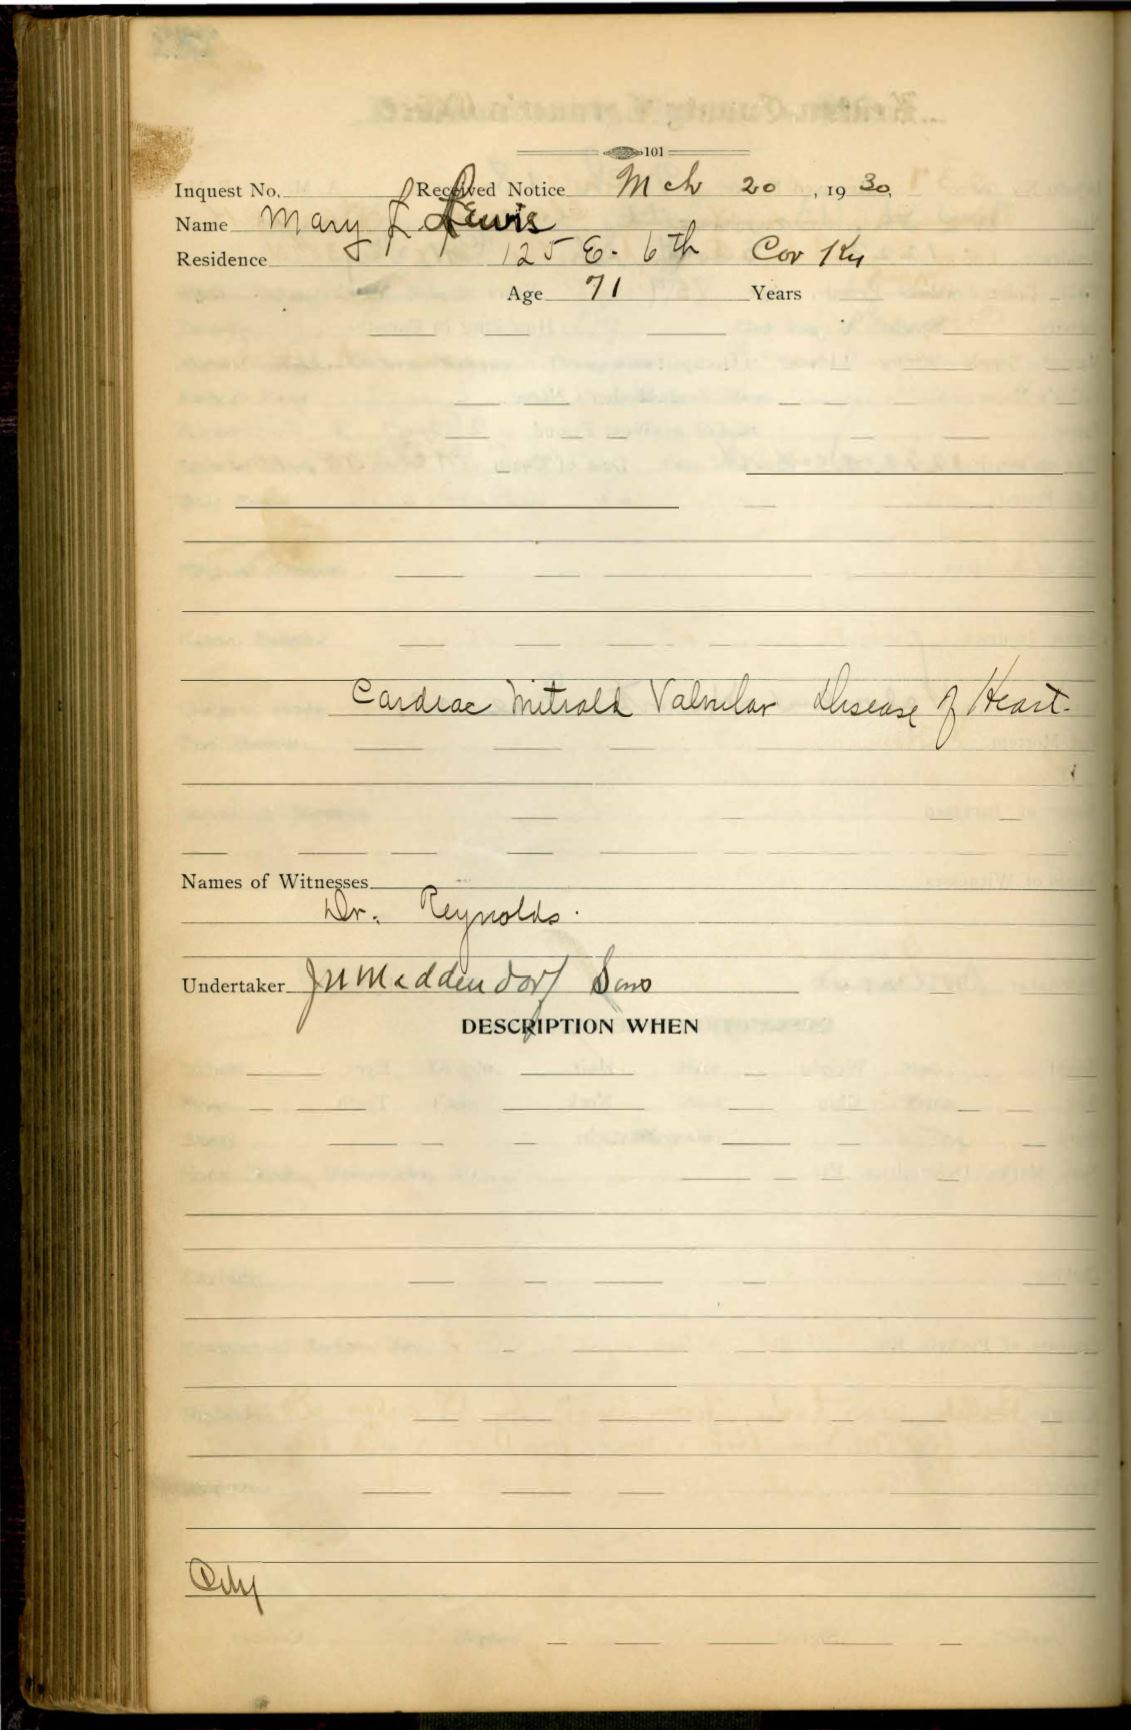 101
Inquest No. Received Notice Mch 20, 1930,
Name Mary L Lewis
Residence 125 E. 6th Cov Ky
Age 71 Years
Cardiac Mitrald Valvular Disease of Heart.
Names of Witnesses
Dr. Reynolds.
Undertaker JN Maddendorf Sons
DESCRIPTION WHEN
City